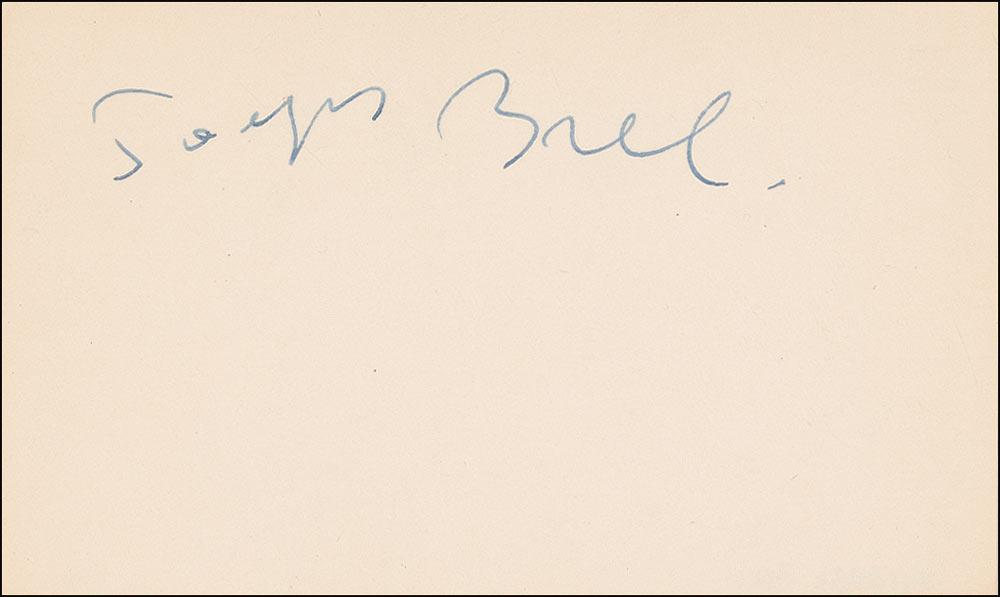 Jacques Brel.